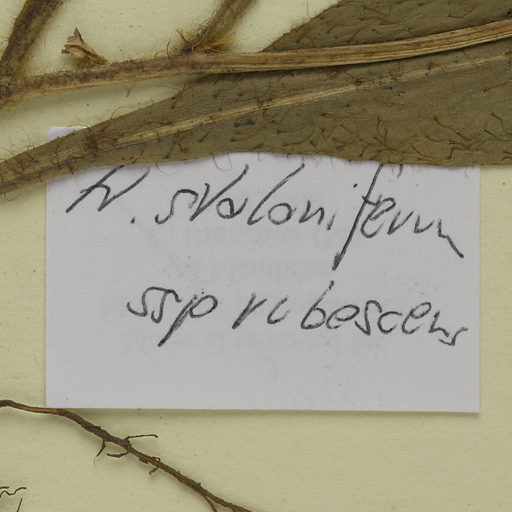 H. stoloniferum
ssp rubescens